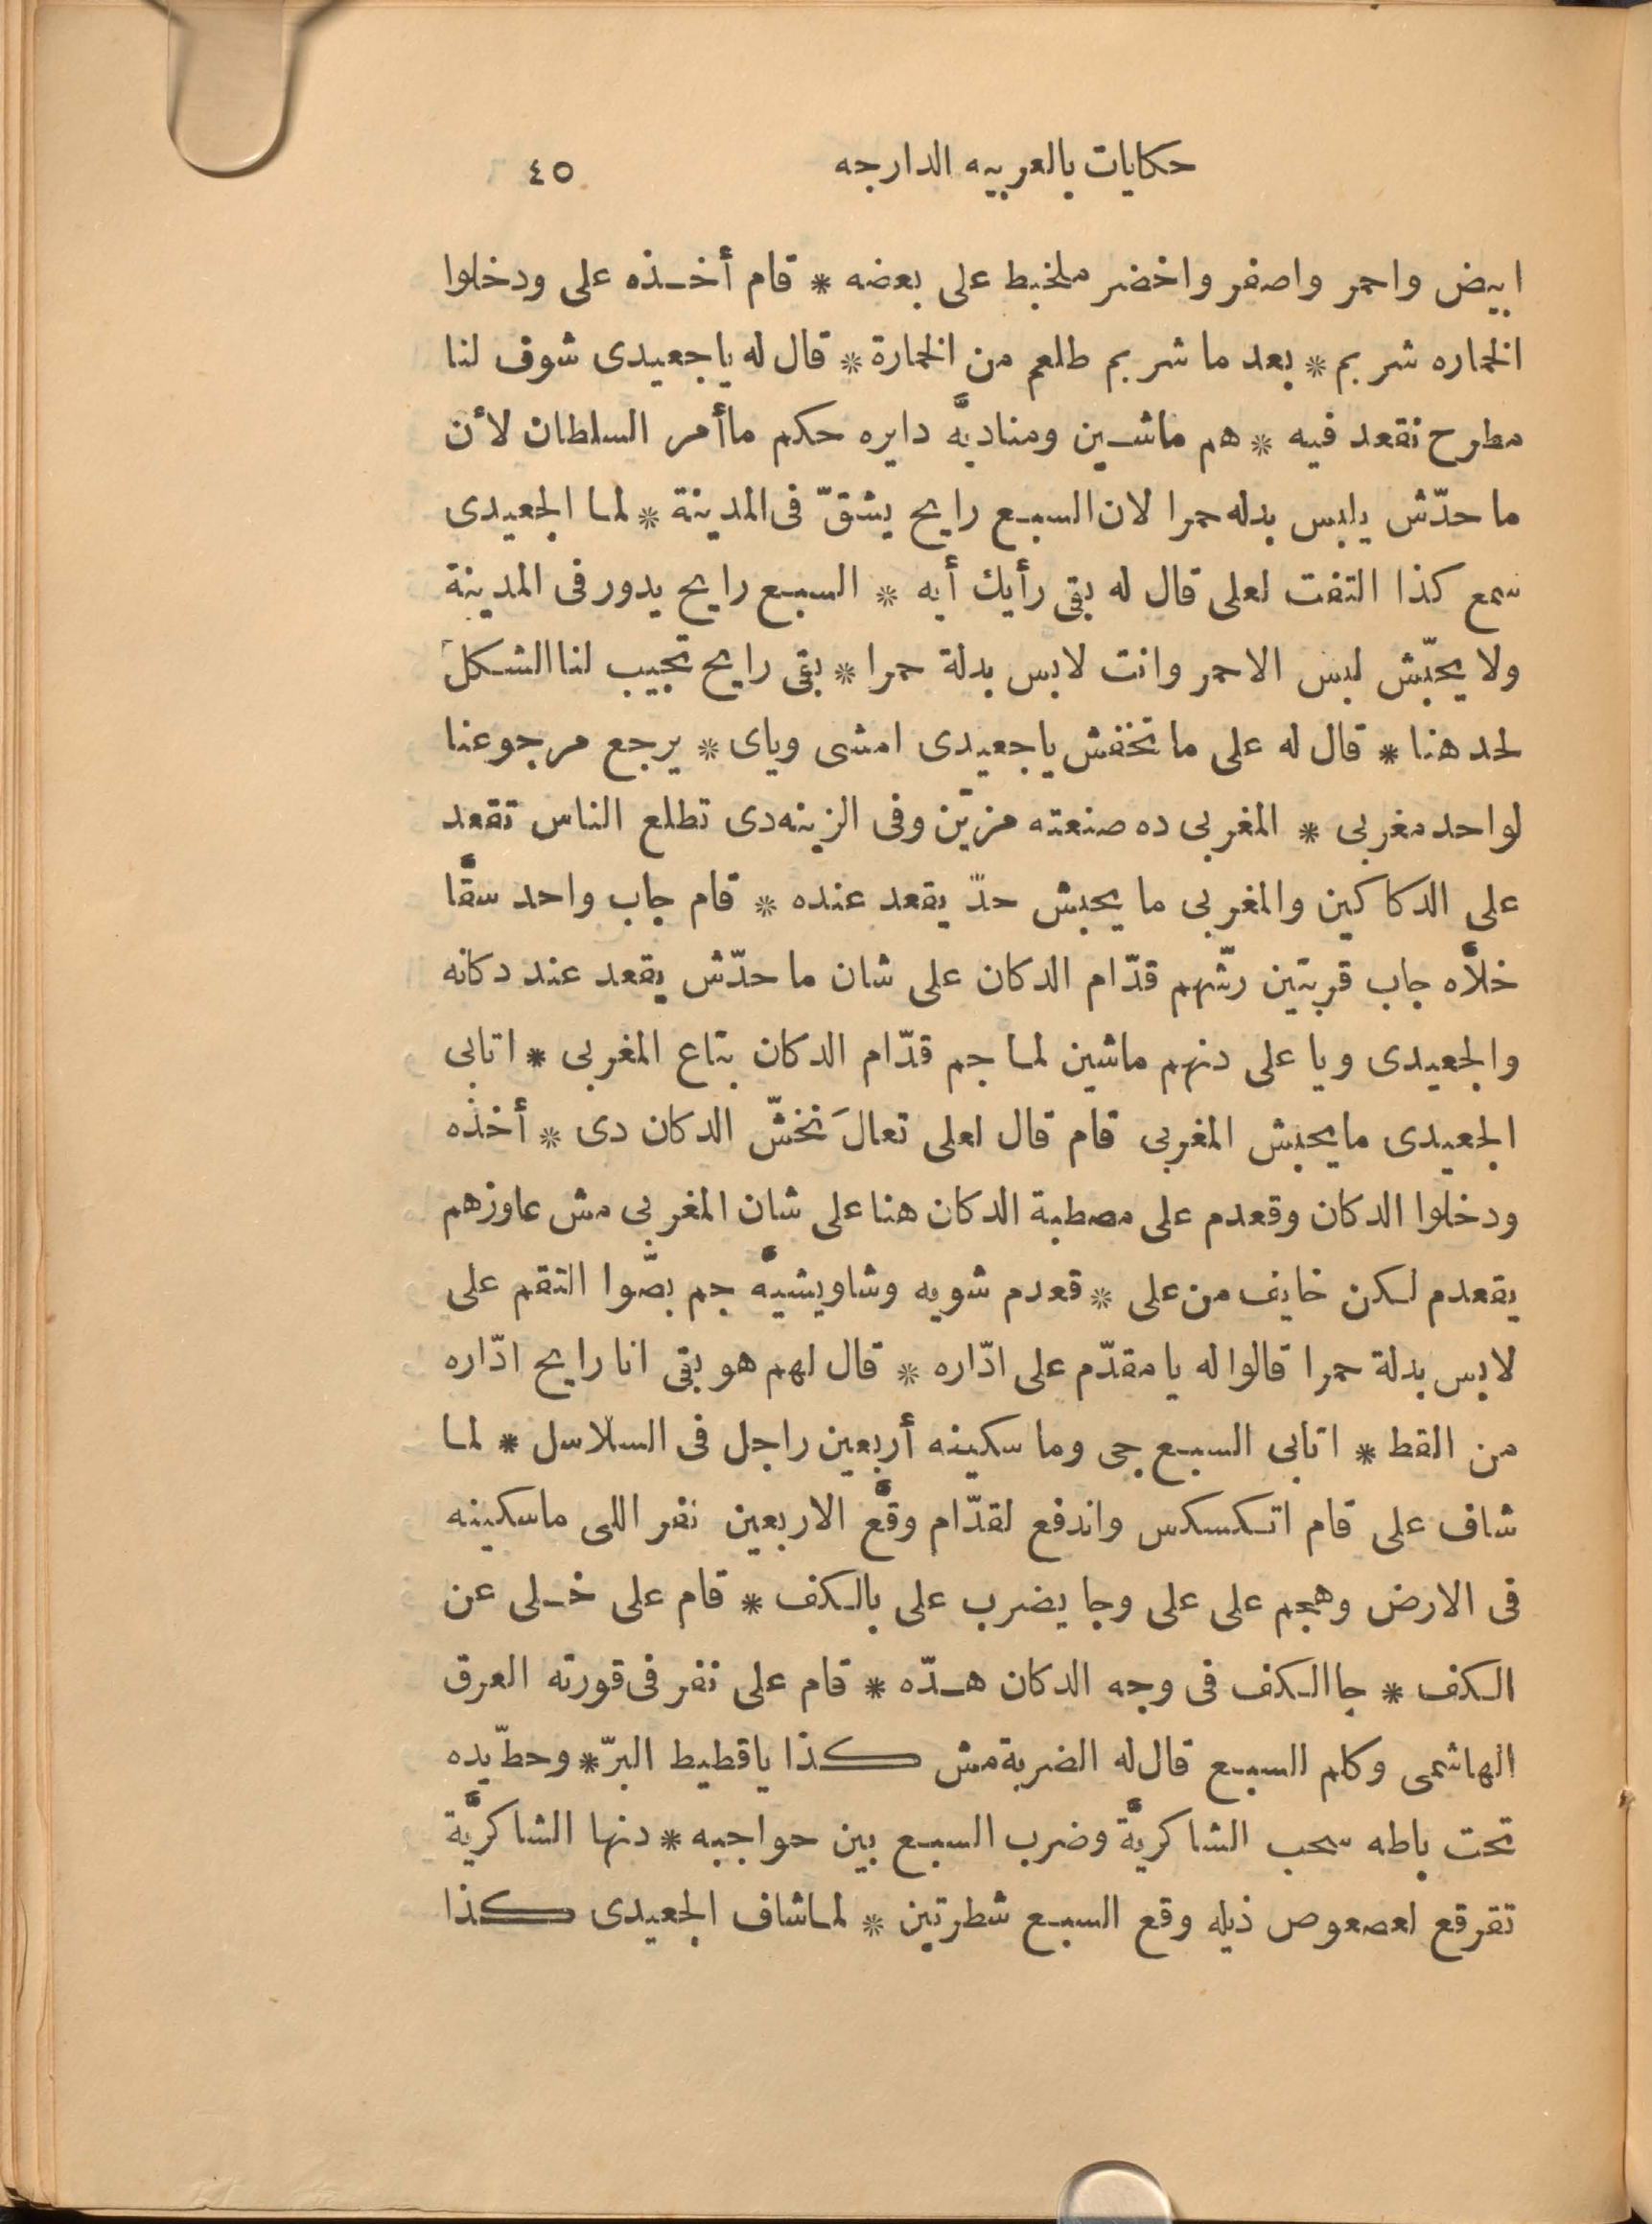 حكايات بالعربيه الدارجه ٤٥
ابيض واحمر واصفر واخضر ملخبط على بعضه * قام أخـذه على ودخلوا
الخماره شربم * بعد ما شربم طلعم من الخمارة * قال له ياجعيدى شوف لنا
مطرح نقعد فيه * هم ماشـين ومناديّه دايره حكم ماأمر السلطان لأن
ما حدّش يلبس بدله حمرا لان السبع رايح يشقّ فى المدينة * لما الجعيدى
سمع كذا التفت لعلى قال له بقى رأيك أيه * السبع رايح يدور فى المدينة
ولا يحبّش لبس الاحمر وانت لابس بدلة حمرا * بقى رايح تجيب لنا الشكلَ
لحد هنا * قال له على ما تخفش ياجعيدى امشى وياى * يرجع مرجوعنا
لواحد مغربى * المغربى ده صنعته مزيّن وفى الزينه دى تطلع الناس تقعد
على الدكاكين والمغربى ما يحبش حدّ يقعد عنده * قام جاب واحد سقّا
خلاّه جاب قربتين رشّهم قدّام الدكان على شان ما حدّش يقعد عند دكانه
والجعيدى ويا على دنهم ماشين لما جم قدّام الدكان بتاع المغربى * اتابى
الجعيدى مايحبش المغربى قام قال لعلى تعالَ نخشّ الدكان دى * أخذه
ودخلوا الدكان وقعدم على مصطبة الدكان هنا على شان المغربى مش عاوزهم
يقعدم لكن خايف من على * قعدم شويه وشاويشيّه جم بصّوا التقم على
لابس بدلة حمرا قالوا له يا مقدّم على ادّاره * قال لهم هو بقى انا رايح ادّاره
من القط * اتابى السبع جى وما سكينه أربعين راجل فى السلاسل * لما
شاف على قام اتكسكس واندفع لقدّام وقّع الاربعين نفر اللى ماسكينه
فى الارض وهجم على على وجا يضرب على بالكف * قام على خـلى عن
الكف * جا الكف فى وجه الدكان هـدّه * قام على نفر فى قورته العرق
الهاشمى وكلم السبع قال له الضربة مش كذا ياقطيط البرّ * وحطّ يده
تحت باطه سحب الشاكريّة وضرب السبع بين حواجبه * دنها الشاكريّة
تفرقع لعصعوص ذيله وقع السبع شطرتين * لما شاف الجعيدى كذا